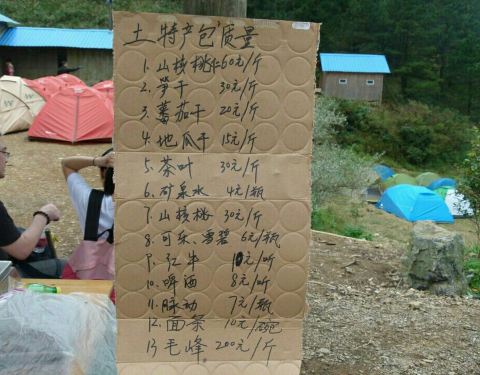 土特产包质量
1. 山核桃仁60元/斤
2. 笋干 30元/斤
3. 蕃茄干 20元/斤
4. 地瓜干 15元/斤
5. 茶叶 30元/斤
6. 矿泉水 4元/瓶
7. 山核桃 30元/斤
8. 可乐、雪碧 6元/瓶
9. 红牛 10元/听
10. 啤酒 8元/听
11. 脉动 7元/瓶
12. 面条 10元/碗
13 毛峰 200元/斤